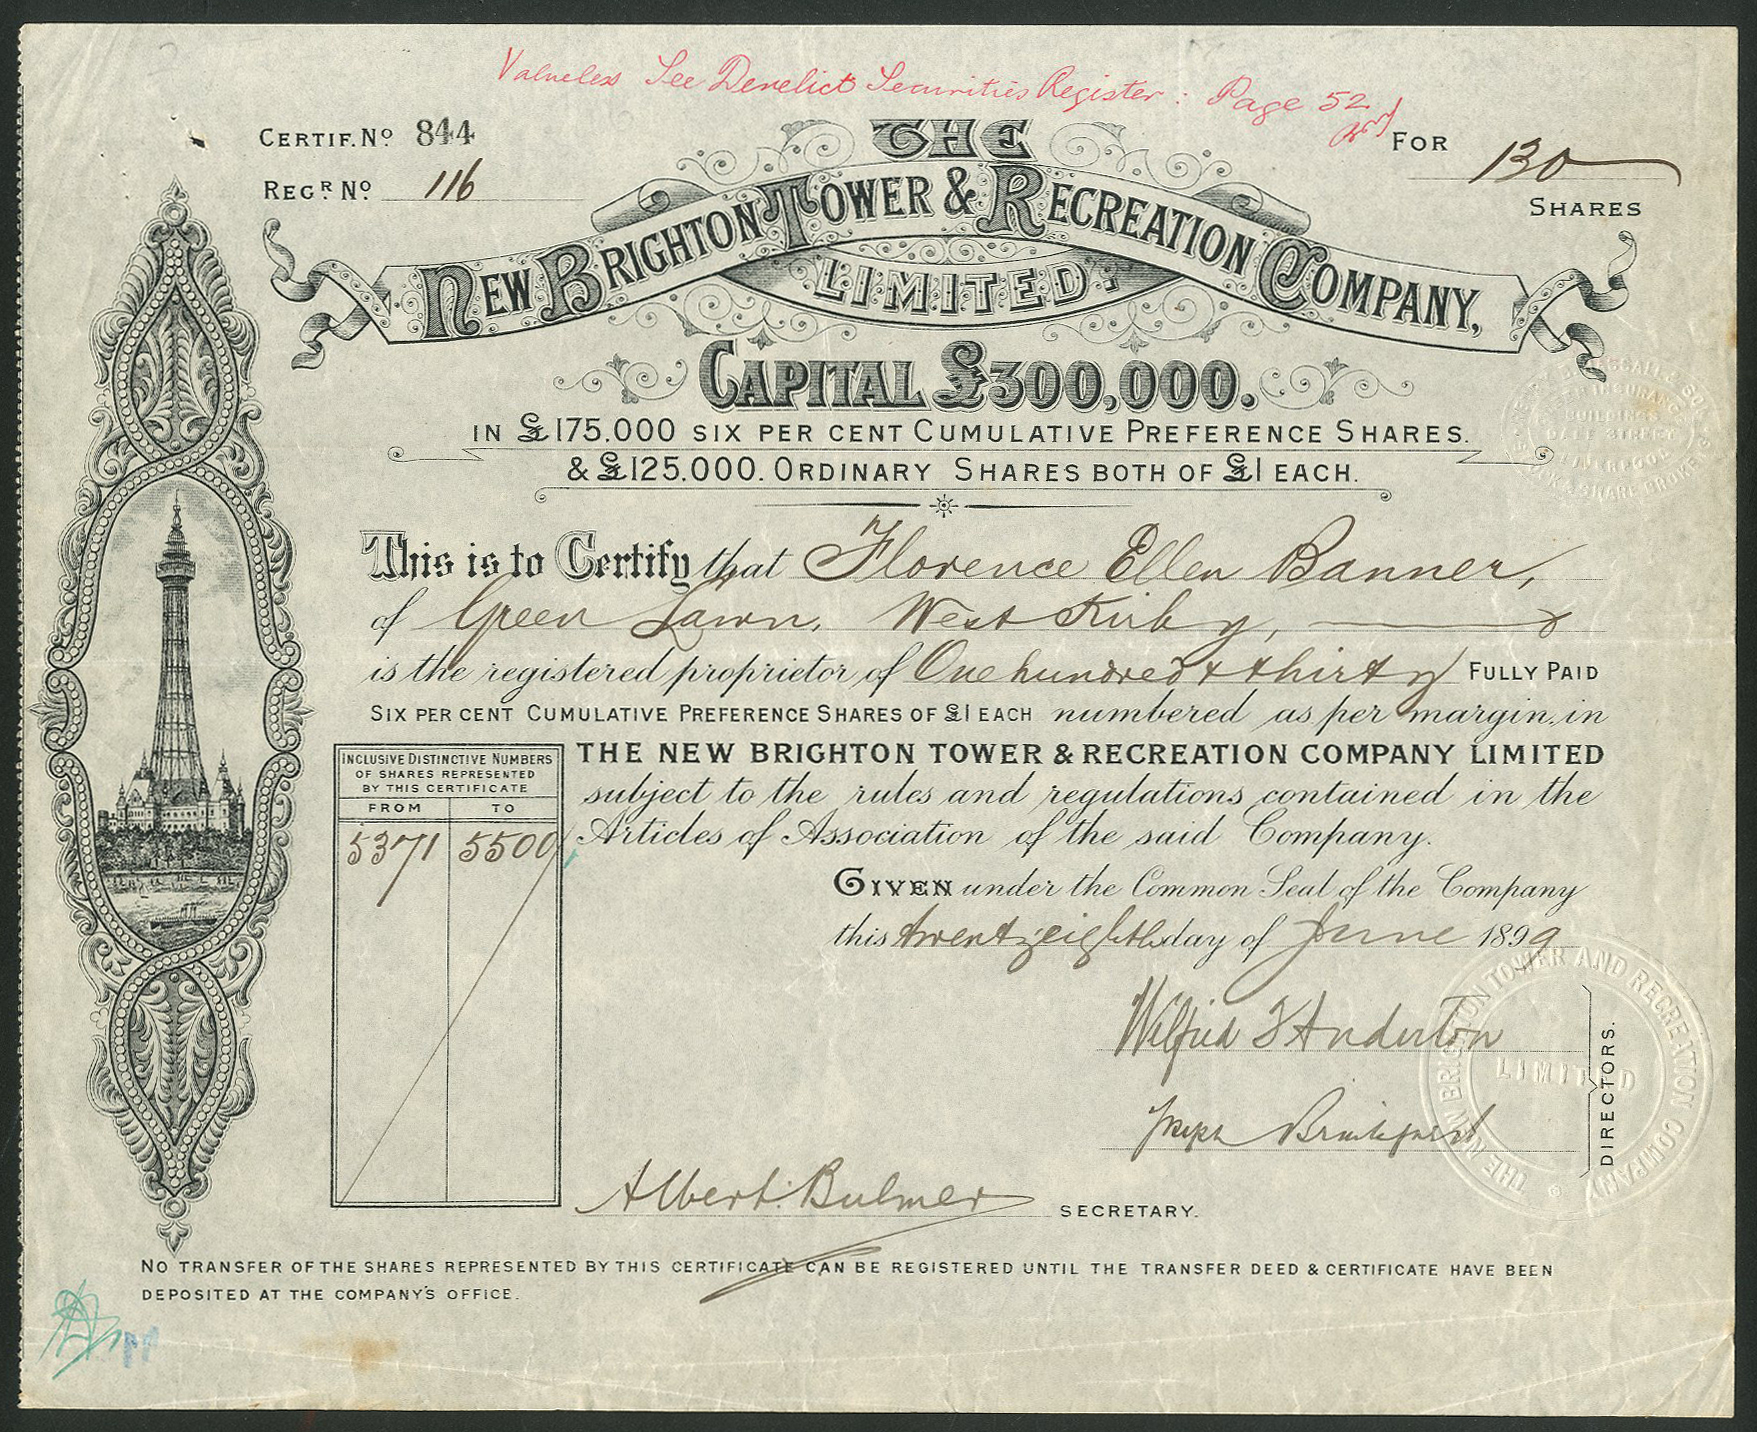 Valueless See Derelict Securities Register: Page 52
CERTIF. No 844
FOR 130
REGR. No 116
SHARES
THE
NEW BRIGHTON TOWER & RECREATION COMPANY,
LIMITED.
CAPITAL £300,000.
IN £175.000 SIX PER CENT CUMULATIVE PREFERENCE SHARES.
& £125.000. ORDINARY SHARES BOTH OF £1 EACH.
This is to Certify that Florence Ellen Banner,
of Green Lawn, West Kirby,
is the registered proprietor of One hundred & thirty FULLY PAID
SIX PER CENT CUMULATIVE PREFERENCE SHARES OF £1 EACH numbered as per margin, in
THE NEW BRIGHTON TOWER & RECREATION COMPANY LIMITED
subject to the rules and regulations contained in the
Articles of Association of the said Company.
INCLUSIVE DISTINCTIVE NUMBERS
OF SHARES REPRESENTED
BY THIS CERTIFICATE
FROM TO
5371 5500
GIVEN under the Common Seal of the Company
this twenty eighth day of June 1899
Wilfrid F Anderton
Joseph
DIRECTORS.
THE NEW BRIGHTON TOWER AND RECREATION COMPANY
LIMITED
Albert Bulmer SECRETARY.
NO TRANSFER OF THE SHARES REPRESENTED BY THIS CERTIFICATE CAN BE REGISTERED UNTIL THE TRANSFER DEED & CERTIFICATE HAVE BEEN
DEPOSITED AT THE COMPANY'S OFFICE.